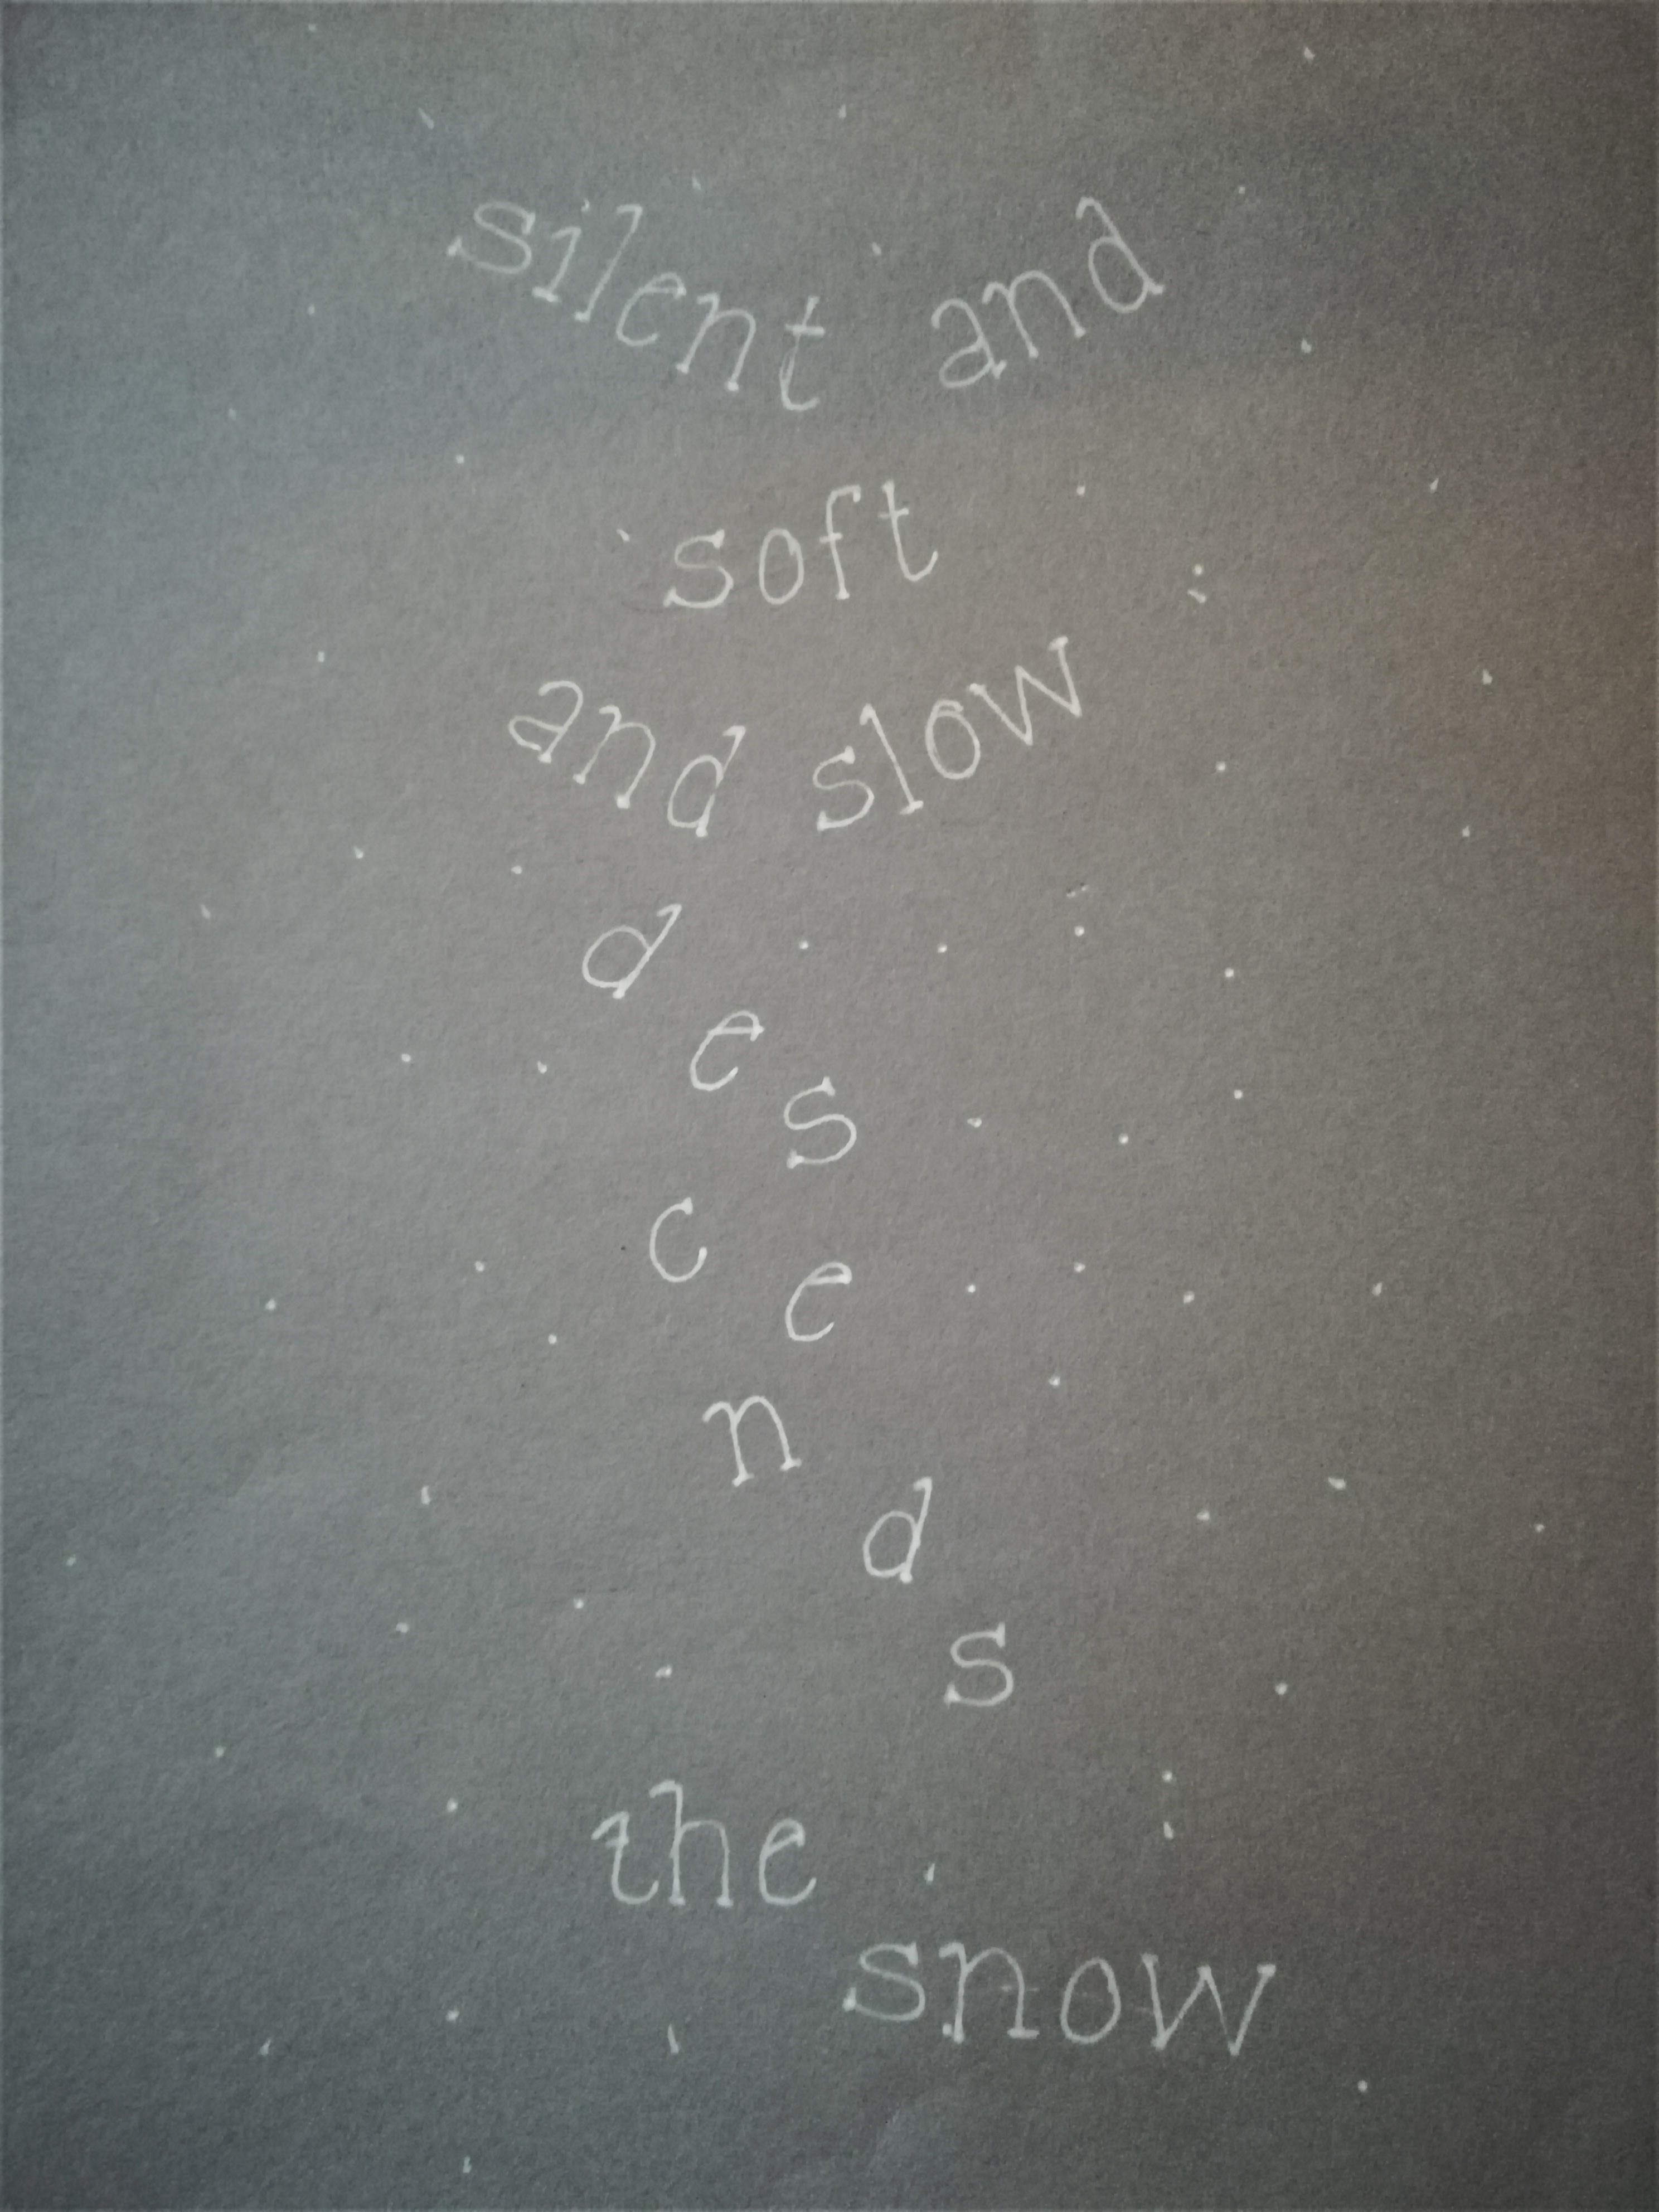 silent and
soft
and slow
d
e
s
c
e
n
d
s
the
snow